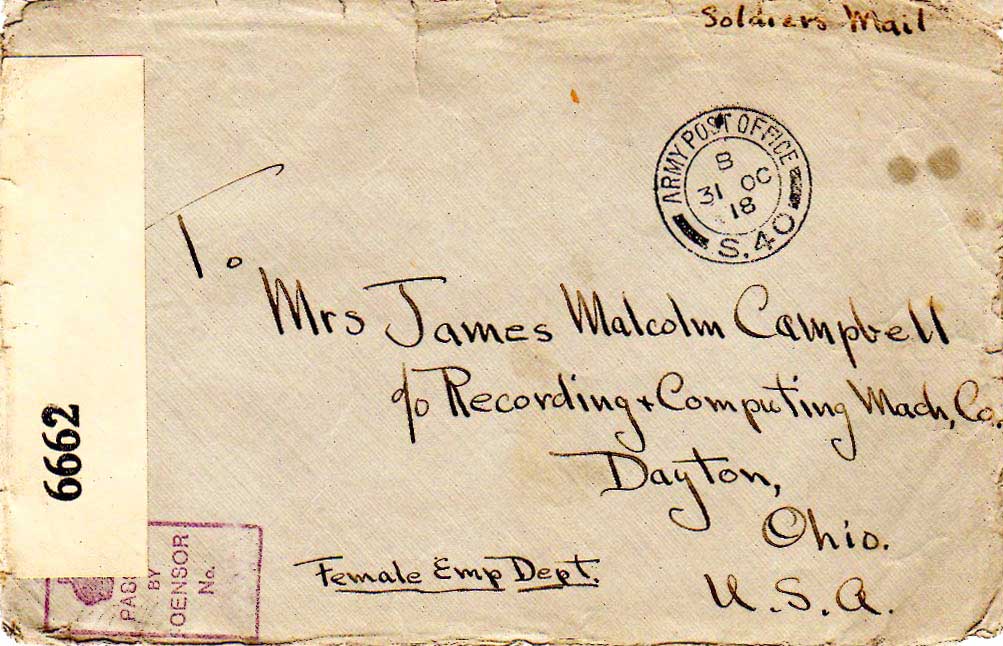 Soldiers Mail
ARMY POST OFFICE
B
31 OC
18
S.40
To
Mrs James Malcolm Campbell
c/o Recording + Computing Mach, Co.
Dayton,
Ohio.
U.S.A.
Female Emp Dept.
6662
BY
CENSOR
No.